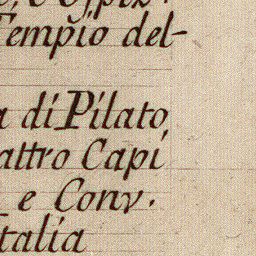 Tempio del-
a di Pilato
attro Capi
e Conv.
talia